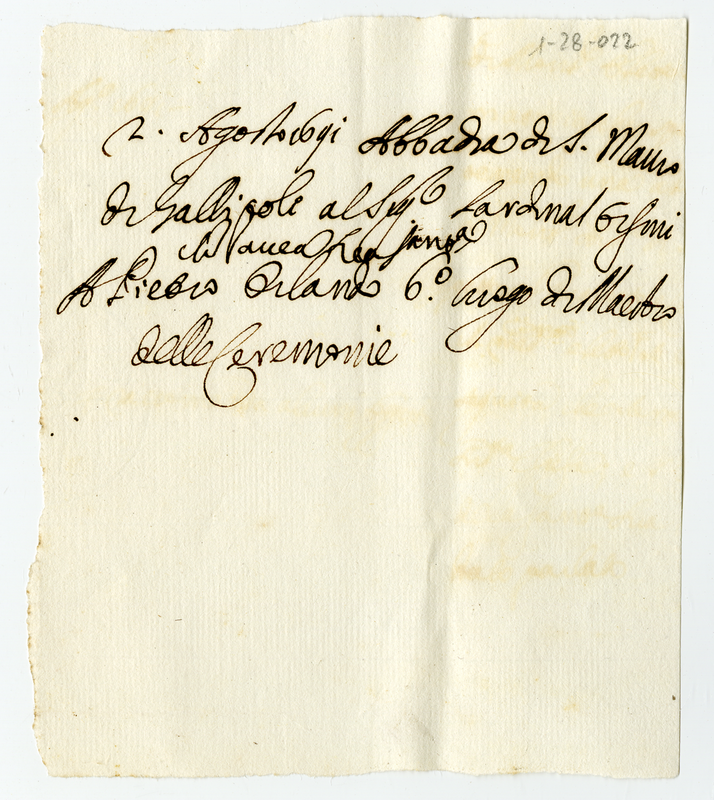 1-28-022
2. Agosto 1691 Abbadia di S. Mauro
di Gallipoli al Sigr Cardinal Orsini
A Pietro Orlando 6.º luogo di Maestro
delle Ceremonie